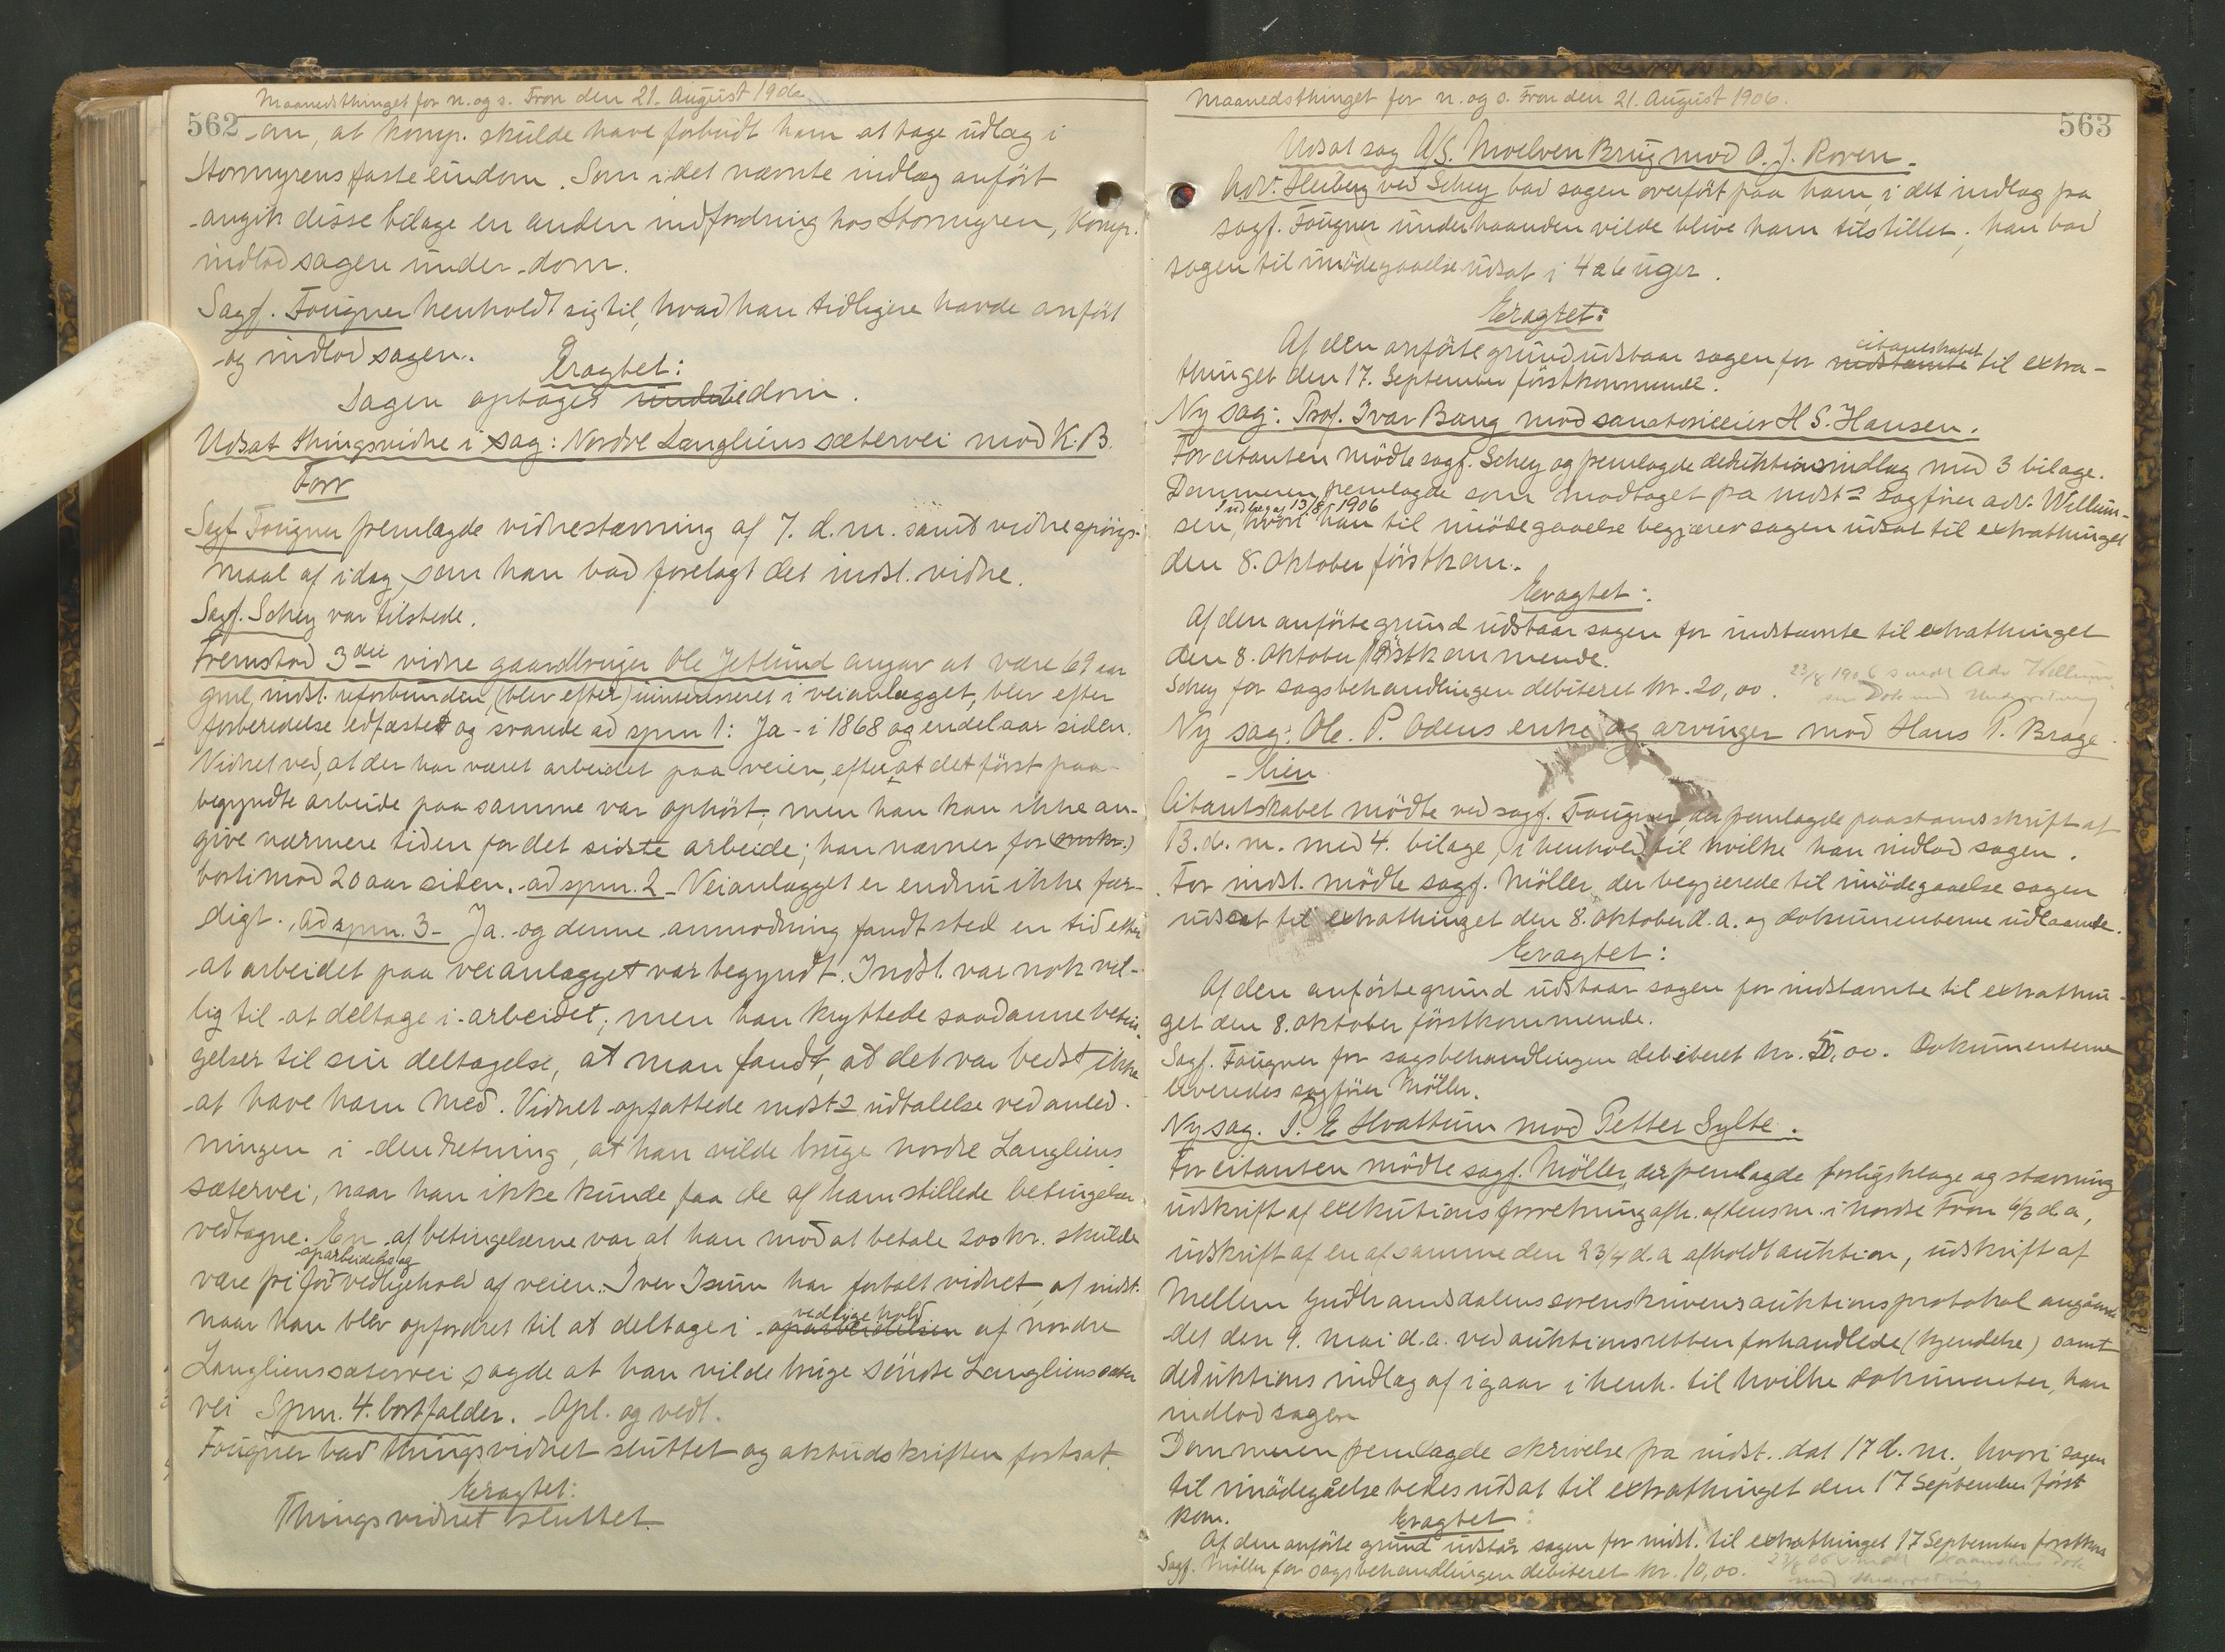 Maanedsthinget for n. og s. Fron den 21. August 1906
562
-an, at komp. skulde have forbudt ham at tage udlæg i
Stormyrens faste eiendom. Som i det nævnte indlæg anført
angik disse bilage en anden indfordring hos Stormyren, Komp.
indlod sagen under dom.
Sagf. Fougner henholdt sig til, hvad han tidligere havde anført
og indlod sagen.
Eragtet:
Sagen optages under til dom.
Udsat thingsvidne i sag: Nordre Langliens sætervei mod K. B.
Forr
Sagf. Fougner fremlagde vidnestævning af 7. d.m. samt vidnespörgs-
maal af idag, som han bad forelagt det indst. vidne.
Sagf. Schey var tilstede.
Fremstod 3die vidne gaardbruger Ole Jetlund angav at være 69 aar
gml, indst. uforbunden, (blev efter) uinteresseret i veianlægget, blev efter
forberedelse edfæstet og svarede ad spm 1: Ja - i 1868 og endel aar siden.
Vidnet ved, at der har været arbeidet paa veien, efter at det først paa-
begyndte arbeide paa samme var ophört, men han kan ikke an-
give nærmere tiden for det sidste arbeide; han nævner for (omkr.)
bortimod 20 aar siden. ad spm. 2 - Veianlægget er endnu ikke fær-
digt. Ad spm. 3 - Ja. og denne anmodning fandt sted en tid efter
at arbeidet paa veianlægget var begyndt. Indst. var nok vil-
lig til at deltage i arbeidet; men han knyttede saadanne betin-
gelser til sin deltagelse, at man fandt, at det var bedst ikke
at have ham med. Vidnet opfattede indst.s udtalelse ved anled-
ningen i den retning, at han vilde bruge nordre Langliens
sætervei, naar han ikke kunde faa de af ham stillede betingelser
vedtagne. En af betingelserne var at han mod at betale 200 kr. skulde
oparbeidelse og
være fri for vedligehold af veien. Iver Isum har fortalt vidnet, at indst.
vedligehold
naar han blev opfordret til at deltage i oparbeidelsen af nordre
Langliens sætervei sagde at han vilde bruge söndre Langliens sæter
vei Spm. 4. bortfalder. Opl. og vedt.
Fougner bad thingsvidnet sluttet og aktudskriften fortsat.
Eragtet:
Thingsvidnet sluttet.
Maanedsthinget for n. og s. Fron den 21. August 1906.
563
Udsat sag A/S. Moelven Brug mod O. J. Roven.
Adv. Heiberg ved Schey bad sagen overfört paa ham, i det indlæg fra
sagf. Fougner underhaanden vilde blive ham tilstillet; han bad
sagen til imödegaaelse udsat i 4 a 6 uger.
Eragtet:
citantskabet
Af den anförte grund udstaar sagen for indstævnte til extra-
thinget den 17. September förstkommende.
Ny sag: Prof. Ivar Bang mod sanatorieeier H S. Hansen.
For citanten mödte sagf. Schey og fremlagde deduktionsindlæg med 3 bilage.
Dommeren fremlagde som modtaget fra indst.s sagförer adv. Willum-
Indlæg af 13/8 1906
sen, hvori han til imödegaaelse begjærer sagen udsat til extrathinget
den 8. Oktober förstkom.
Eragtet:
Af den anförte grund udstaar sagen for indstævnte til extrathinget
den 8. Oktober förstkommende.
Schey for sagsbehandlingen debiteret kr. 20,00.
23/8 1906 sendt Adv Willum-
sen Dok med Underretning
Ny sag: Ole. P. Odens enke og arvinger mod Hans P. Brage
-lien
Citantskabet mödte ved sagf. Fougner, der fremlagde paastandsskrift af
13. d. m. med 4. bilage, i henhold til hvilke han indlod sagen.
For indst. mödte sagf. Möller, der begjærede til imödegaaelse sagen
udsat til extrathinget den 8. Oktober d. a. og dokumenterne udlaante.
Eragtet:
Af den anförte grund udstaar sagen for indstævnte til extrathin-
get den 8. Oktober förstkommende.
Sagf. Fougner for sagsbehandlingen debiteret kr. 50,00. Dokumenterne
leveredes sagförer Möller.
Ny sag. P. E Hvattum mod Petter Sylte.
For citanten mödte sagf. Möller, der fremlagde forligsklage og stævning
udskrift af exekutionsforretning afh. af lensm. i nordre Fron 6/3 d a,
udskrift af en af samme den 23/4 d. a afholdt auktion, udskrift af
Mellem Gudbrandsdalens sorenskrivers auktionsprotokol angaaende
det den 9. mai d. a. ved auktionsretten forhandlede (kjendelse) samt
deduktions indlæg af igaar i henh. til hvilke dokumenter, han
indlod sagen
Dommeren fremlagde skrivelse fra indst. dat 17 d. m., hvori sagen
til imödegåelse bedes udsat til extrathinget den 17 September först
kom.
Eragtet:
Af den anförte grund udstår sagen for indst. til extrathinget 17 September förstkom
Sagf. Möller for sagsbehandlingen debiteret kr. 10,00.
med Underretning